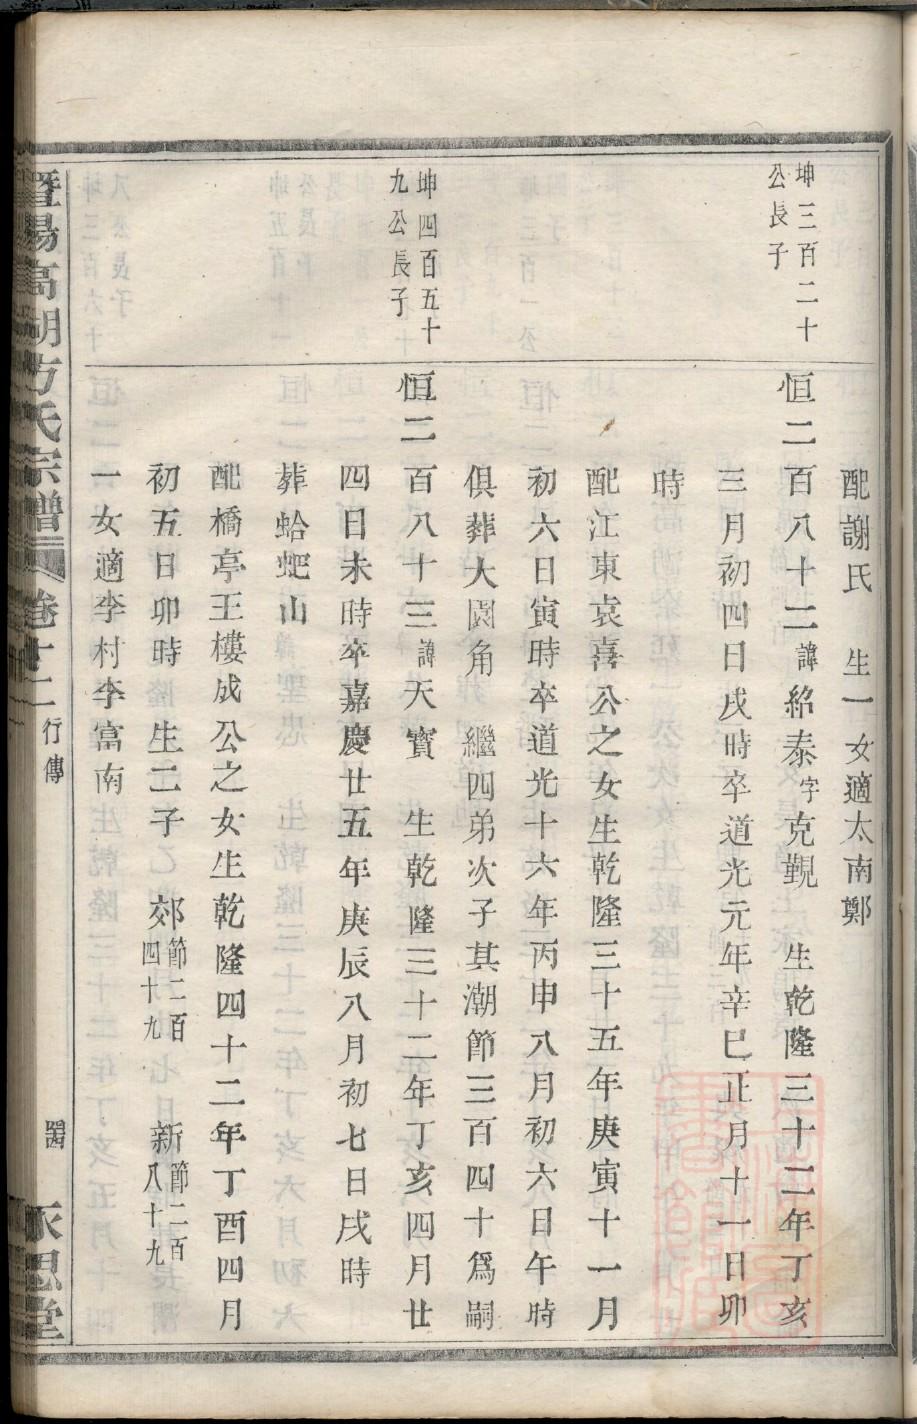 配謝氏 生一女適太南鄭
坤三百二十
公長子
恒二百八十二諱紹泰字克觀 生乾隆三十二年丁亥
三月初四日戌時卒道光元年辛巳正月十一日卯
時
配江東袁喜公之女生乾隆三十五年庚寅十一月
初六日寅時卒道光十六年丙申八月初六日午時
俱葬大園角 繼四弟次子其潮節三百四十爲嗣
坤四百五十
九公長子
恒二百八十三諱天寳 生乾隆三十二年丁亥四月廿
四日未時卒嘉慶廿五年庚辰八月初七日戌時
葬蛤蚆山
配橋亭王樓成公之女生乾隆四十二年丁酉四月
初五日卯時 生二子 郊節二百四十九 新節二百八十九
一女適李村李富南
暨陽高湖方氏宗譜 卷十二 行傳 永思堂